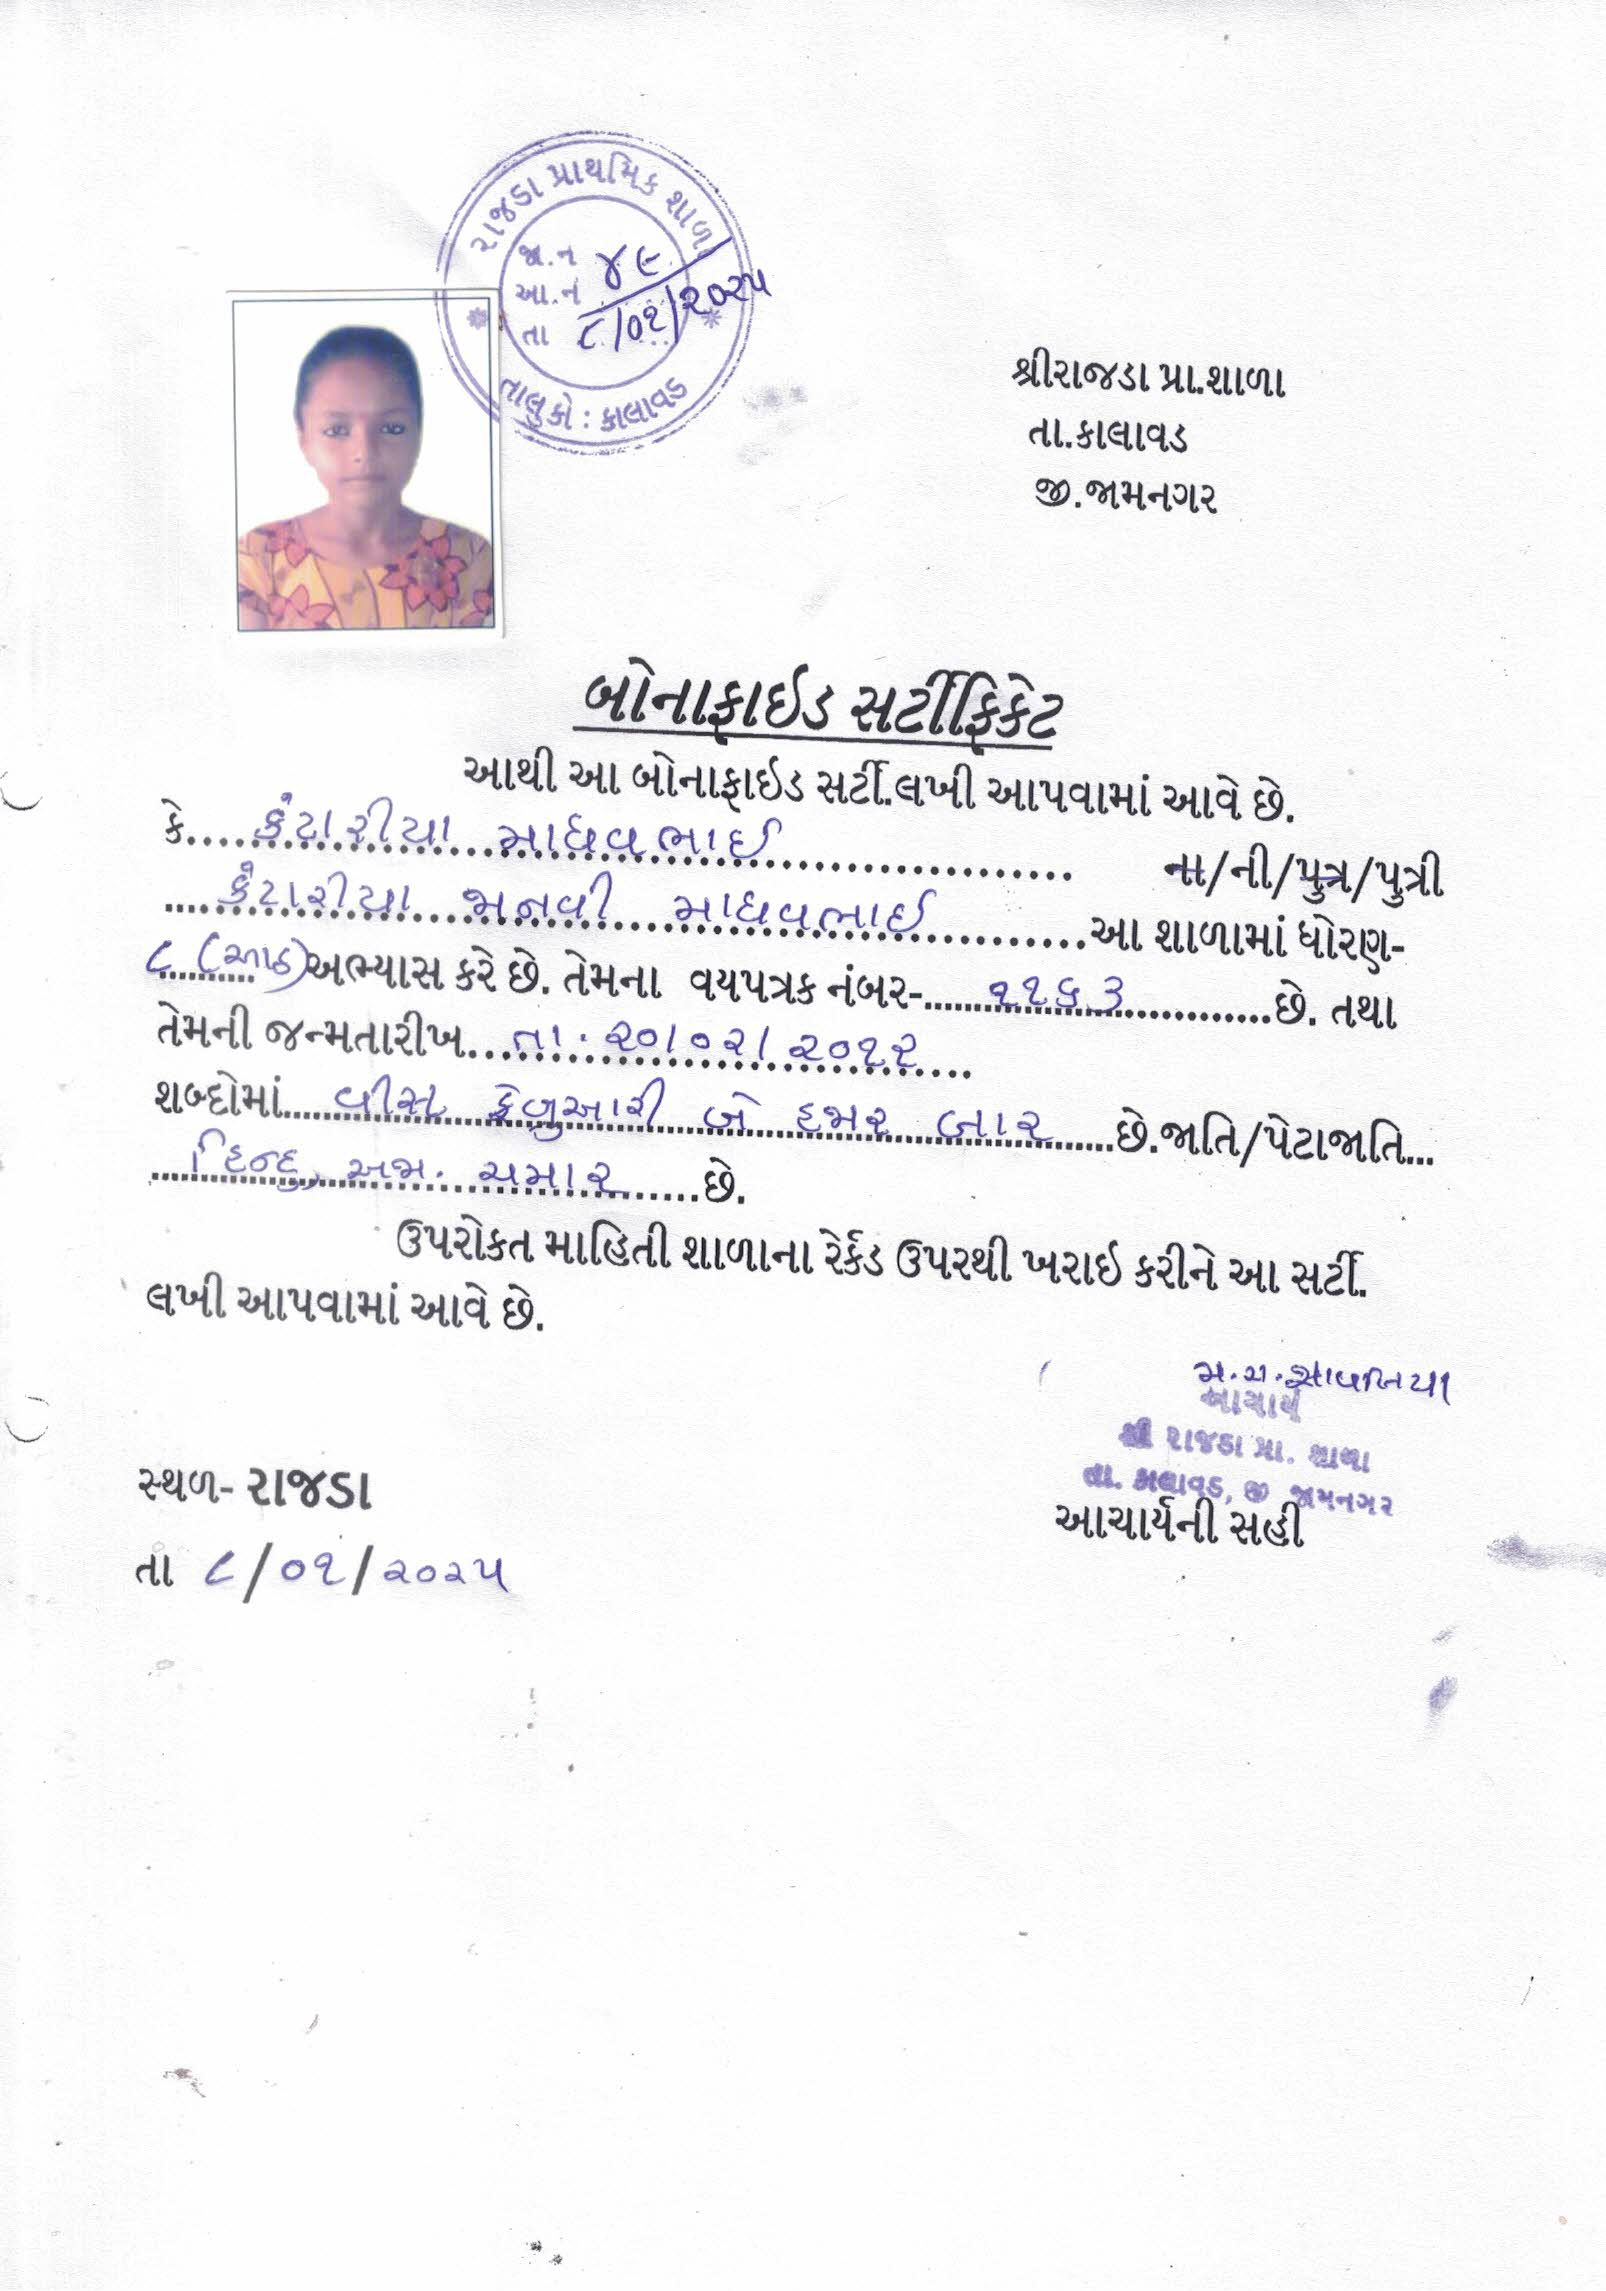 રાજડા પ્રાથમિક શાળા
જા.ન ૪૯
આ.ન
તા ૮/૦૧/૨૦૨૫
તાલુકો : કાલાવડ
શ્રીરાજડા પ્રા.શાળા
તા.કાલાવડ
જી.જામનગર
બોનાફાઈડ સર્ટીફિકેટ
આથી આ બોનાફાઇડ સર્ટી.લખી આપવામાં આવે છે.
કે....કંટારીયા માધવભાઈ.... ના/ની/પુત્ર/પુત્રી
....કંટારીયા જાનવી માધવભાઈ....આ શાળામાં ધોરણ-
૮ (આઠ)અભ્યાસ કરે છે. તેમના વયપત્રક નંબર-....૧૧૬૩....છે. તથા
તેમની જન્મતારીખ....તા. ૨૦/૦૨/૨૦૧૨....
શબ્દોમાં....વીસ ફેબ્રુઆરી બે હજાર બાર....છે.જાતિ/પેટાજાતિ...
....હિન્દુ, અજા. ચમાર....છે.
ઉપરોકત માહિતી શાળાના રેર્કડ ઉપરથી ખરાઇ કરીને આ સર્ટી.
લખી આપવામાં આવે છે.
આચાર્ય
શ્રી રાજડા પ્રા. શાળા
તા. કાલાવડ, જી જામનગર
આચાર્યની સહી
સ્થળ- રાજડા
તા ૮/૦૧/૨૦૨૫